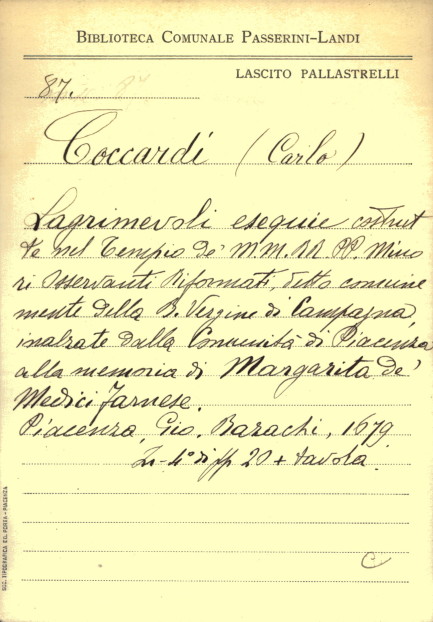 BIBLIOTECA COMUNALE PASSERINI-LANDI
LASCITO PALLASTRELLI
87.
Coccardi (Carlo)
Lagrimevoli esequie costrut
te nel Tempio de' M.M. RR. PP. Mino
ri Osservanti Riformati, detto comune
mente della B. Vergine di Campagna,
inalzate dalla Comunità di Piacenza
alla memoria di Margarita de'
Medici Farnese.
Piacenza, Gio. Bazachi, 1679
In-4° di pp 20 + tavola.
C
SOC. TIPOGRAFICA ED. PORTA - PIACENZA